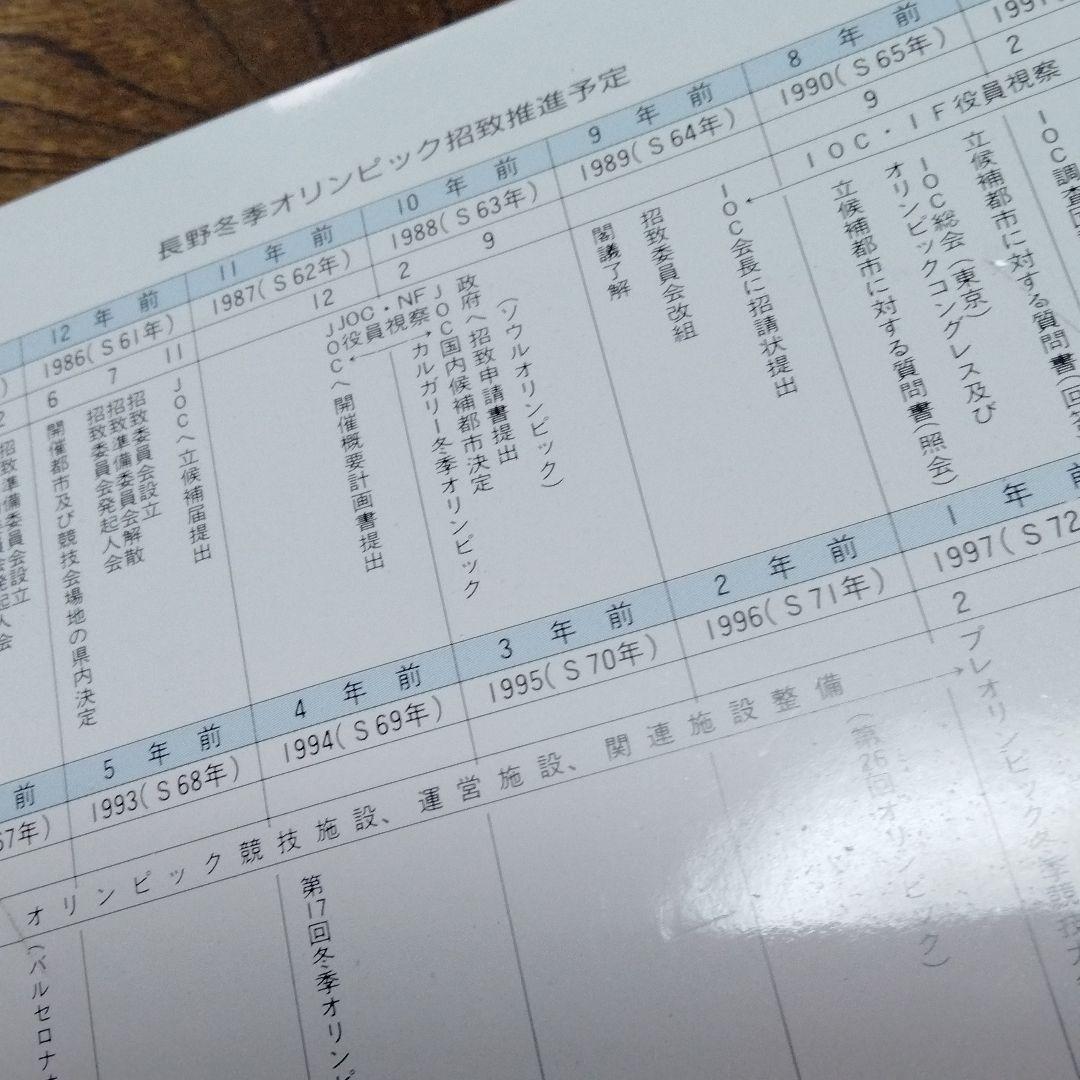 長野冬季オリンピック招致推進予定
12年前
11年前
10年前
9年前
8年前
1986(S61年)
1987(S62年)
1988(S63年)
1989(S64年)
1990(S65年)
6
7
11
12
2
9
9
2
招致準備委員会設立
開催都市及び競技会場地の県内決定
招致委員会発起人会
招致準備委員会解散
招致委員会設立
JOCへ立候補届提出
JOCへ開催概要計画書提出
JOC・NF
役員視察
カルガリー冬季オリンピック
JOC国内候補都市決定
政府へ招致申請書提出
(ソウルオリンピック)
閣議了解
招致委員会改組
IOC会長に招請状提出
IOC・IF役員視察
立候補都市に対する質問書(照会)
オリンピックコングレス及び
IOC総会(東京)
立候補都市に対する質問書(回答
IOC調査
前
5年前
4年前
3年前
2年前
1年前
67年)
1993(S68年)
1994(S69年)
1995(S70年)
1996(S71年)
1997(S72
2
オリンピック競技施設、運営施設、関連施設整備
(バルセロナ
第17回冬季オリンピ
(第26回オリンピック)
プレオリンピック冬季競技大